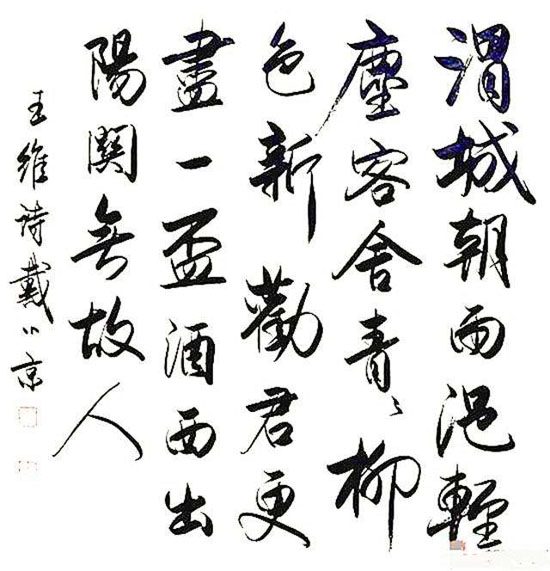 渭城朝雨浥輕
塵客舍青〻柳
色新勸君更
盡一盃酒西出
陽関無故人
王維詩戴小京